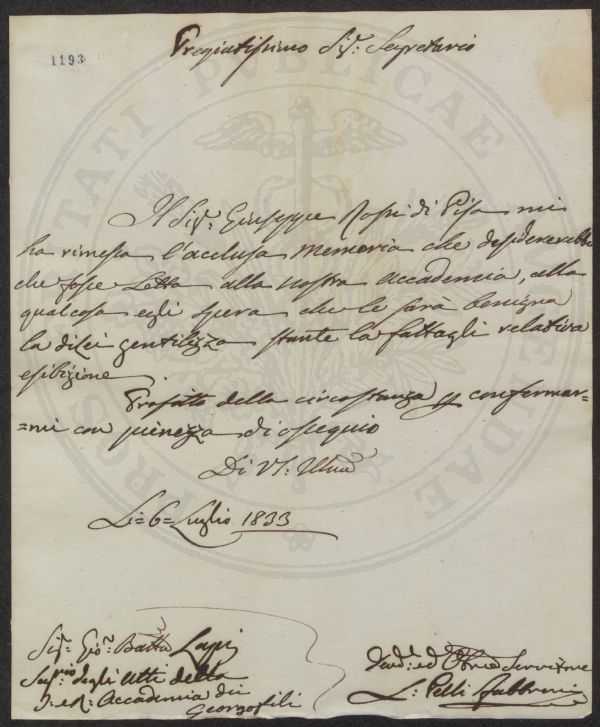 1193
Pregiatissimo Sig.r Segretario
Il Sig.r Giuseppe Rossi di Pisa mi
ha rimessa l'acclusa Memoria che desidererebbe
che fosse Letta alla nostra Accademia, alla
qual cosa egli spera che le sarà benigna
la di Lei gentilezza stante la fattagli relativa
esibizione
Profitto della circostanza p confermar=
=mi con pienezza di ossequio
Di VS: Illma
Li= 6= Luglio 1833
Sig.r Gio: Batta Lapi
Seg.rio degli Atti della
I: e R: Accademia dei
Georgofili
Dev.o ed Obb.mo Servitore
L: Pelli Fabbroni
PUBLICAE